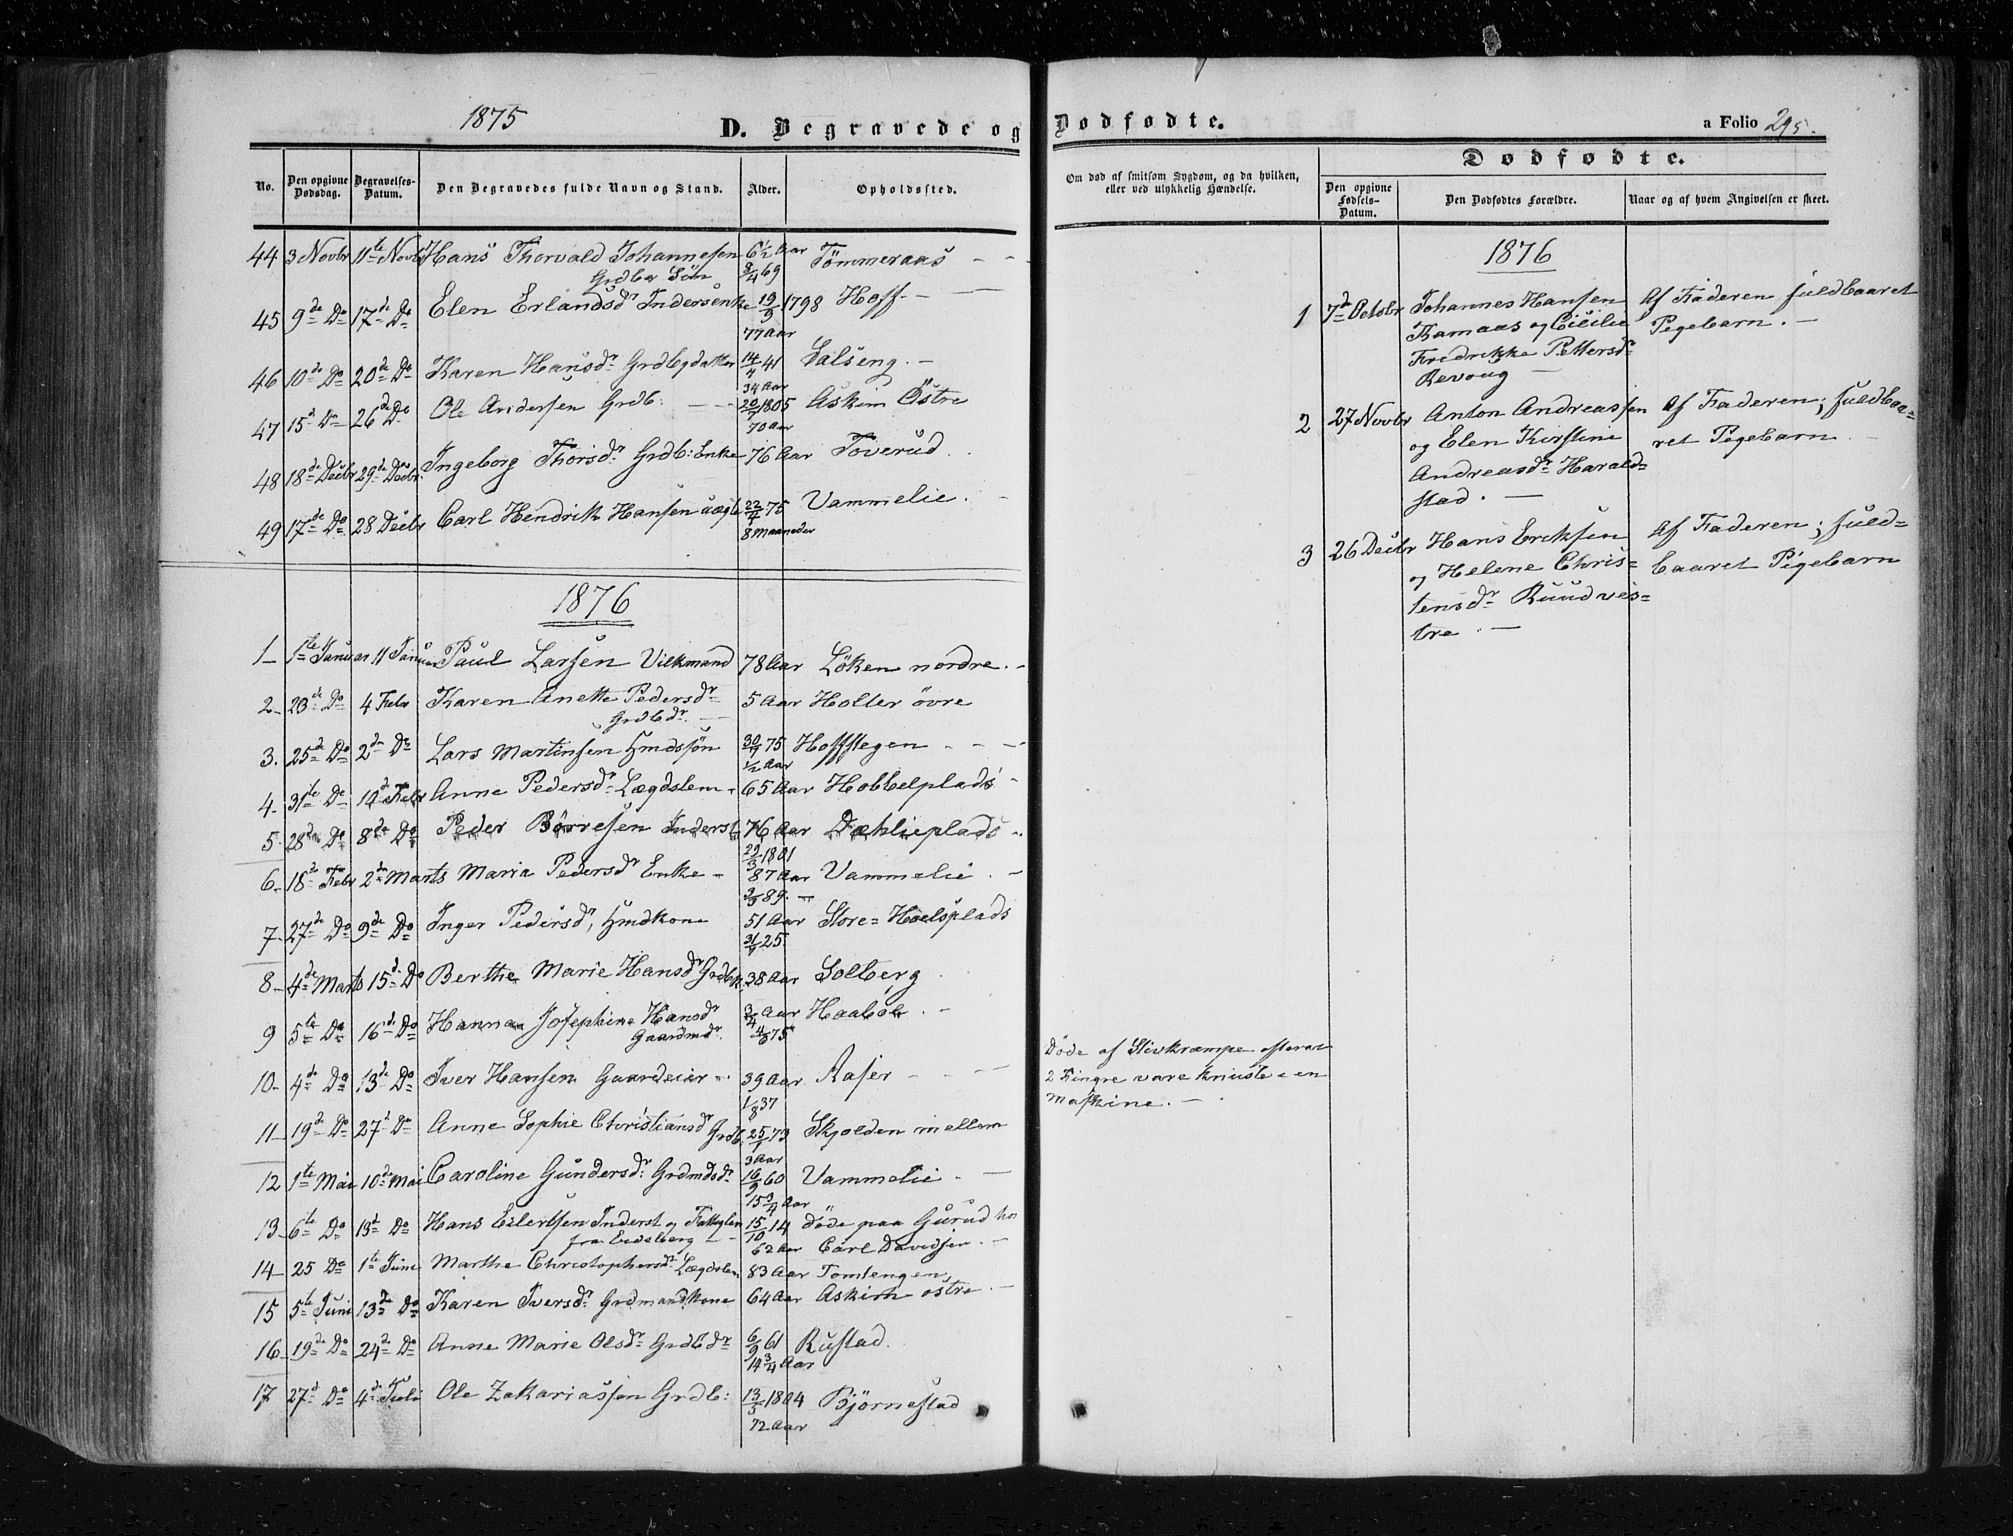 1875
D. Begravede og Dødfødte.
a Folio 295.
No.
Den opgivne Dødsdag.
Begravelses-Datum.
Den Begravedes fulde Navn og Stand.
Alder.
Opholdssted.
Om død af smitsom Sygdom, og da hvilken, eller ved ulykkelig Hændelse.
Dødfødte.
Den opgivne Fødsels-Datum.
Den Dødfødtes Forældre.
Naar og af hvem Angivelsen er skeet.
44 3 Novbr 11te Novbr Hans Thorvald Johannesen 6 1/2 Aar Tømmeraas
Grdbr Søn 3/4 69
45 9de Do 17de Do Elen Erlandsdr Inderstenke 19/3 1798 Hoff.
77 Aar
46 10de Do 20de Do Karen Hansdr Grdbgdatter 14/4 41 Salseng.
34 Aar
47 15d Do 26de Do Ole Andersen Grdb. 20/7 1805 Askim Østre
70 Aar
48 18de Decbr 29de Decbr. Ingeborg Thorsdr Grdb: Enke 76 Aar Toverud
49 17de Do 28 Decbr Carl Hendrik Hansen uægte 22/4 75 Vammelie.
8 maaneder
1876
1 1te Januar 11 Januar Paul Larsen Vilkmand 78 Aar Løken nordre.
2 23de Do 4 Febr Karen Anette Pedersdr 5 Aar Holter øvre
Grdbdr.
3. 25de Do 2den Do Lars Martinsen Hmdssøn 30/7 75 Hoffslegen
1/2 Aar
4 31te Do 10de Febr Anne Pedersdr Lægdslem 65 Aar Hobbelplads
5 28de Do 8de Do Peder Børresen Inderst 76 Aar Dæhlieplads
29/3 1801
6 18de Febr 2den Marts Maria Pedersdr Enke 87 Aar Vammelie.
2/3 89.
7 27de Do 9de Do Inger Pedersdr, Hmdkone 51 Aar Store=Hoelsplads
21/9 25
8 4de Marts 15de Do Berthe Marie Hansdr Grdbk. 38 Aar Solberg
9 5te Do 16de Do Hanna Josephine Hansdr 3/4 Aar Haabøl.
Gaardmdr. 4/8 75
10 4de Do 13de Do Iver Hansen Gaardeier 39 Aar Raser
1/8 37
Døde af Stivkrampe efterat
2 Fingre vare knuste i en
Maskine.
11 19de Do 27de Do Anne Sophie Christiansdr Grdb. 25/1 73 Skjolden mellem
3 Aar
12 1te Mai 10de Mai Caroline Gundersdr Grdmdsdr 16/9 60 Vammelie.
15 3/4 Aar
13 6te Do 13d Do Hans Eilertsen Inderst og Fattiglem 15/10 14 døde paa Gurud hos
fra Eidsberg 62 Aar Carl Davidsen.
14 25 Do 1te Juni Marthe Christophersdr Lægdslem 83 Aar Tomtengen
15 5te Juni 13de Do Karen Iversdr Grdmandkone 64 Aar Askim østre
16 19de Do 24de Do Anne Marie Olsdr Grdbdr 6/9 61 Rustad.
14 3/4 Aar
17 27d Do 4de Juli Ole Zakariassen Grdb: 13/3 1804 Bjørnestad
72 Aar
1876
1 7d Octbr Johannes Hansen Af Faderen fuldbaaret
Kamaas og Cicilie Pigebarn.
Fredrikke Pettersdr
Revoug
2 27 Novbr Anton Andreassen Af Faderen; fuldbaa=
og Elen Kirstine ret Pigebarn
Andreasdr Harald=
stad.
3 26 Decbr Hans Eriksen Af Faderen; fuld=
og Helene Chris= baaret Pigebarn
tensdr Ruud ves=
tre.